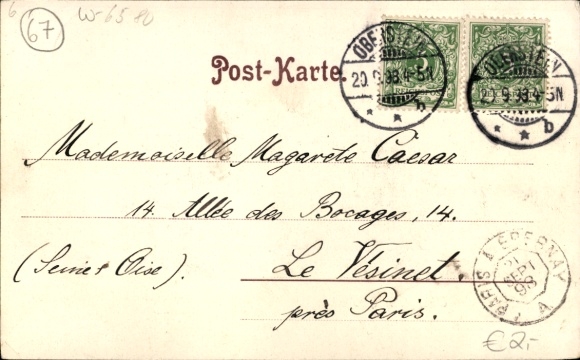 6
67
W-6580
Post-Karte.
OBERSTEIN
20.9.98.4-5N
b
OBERSTEIN
20.9.98.4-5N
b
5
Mademoiselle Magarete Caesar
14. Allée des Bocages, 14.
(Seine & Oise).
Le Vésinet.
près Paris.
PARIS A EPERNAY
21
SEPT
98
A
€2,-